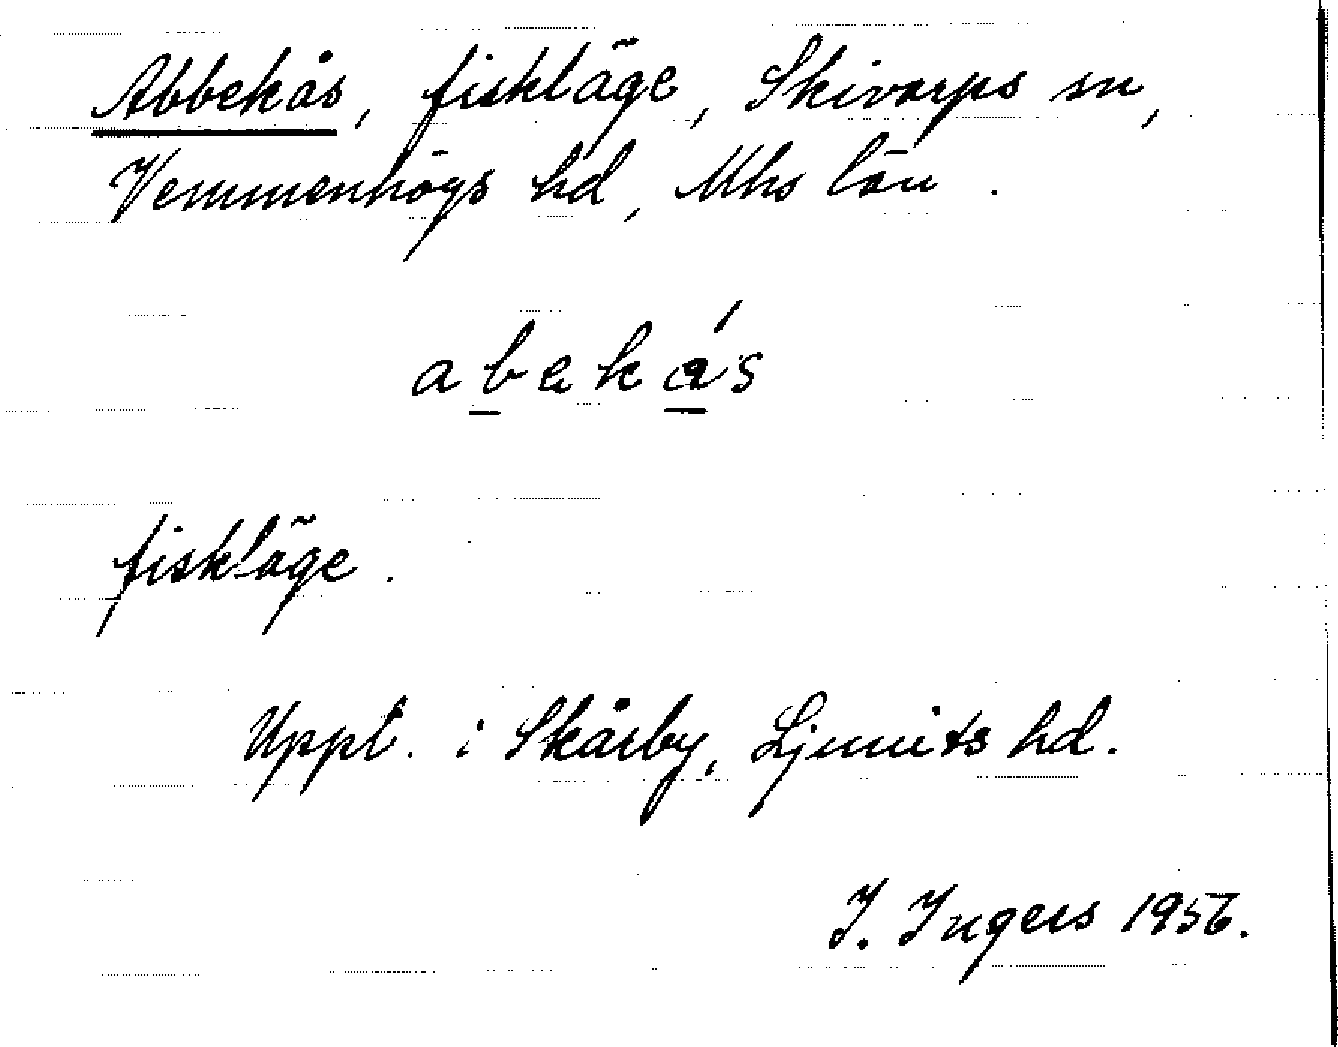 Abbekås, fiskläge, Skivarps sn,
Vemmenhögs hd, Mhs län.
abekás
fiskläge.
Uppt. i Skårby, Ljunits hd.
I. Ingers 1956.